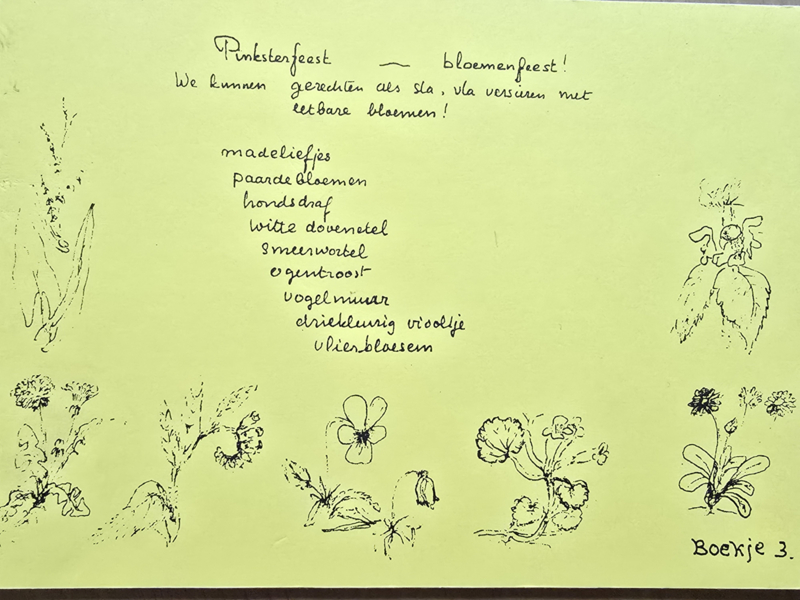 Pinksterfeest — bloemenfeest!
We kunnen gerechten als sla, vla versieren met
eetbare bloemen!
madeliefjes
paardebloemen
hondsdraf
witte dovenetel
smeerwortel
ogentroost
vogelmuur
driekleurig viooltje
vlierbloesem
Boekje 3.